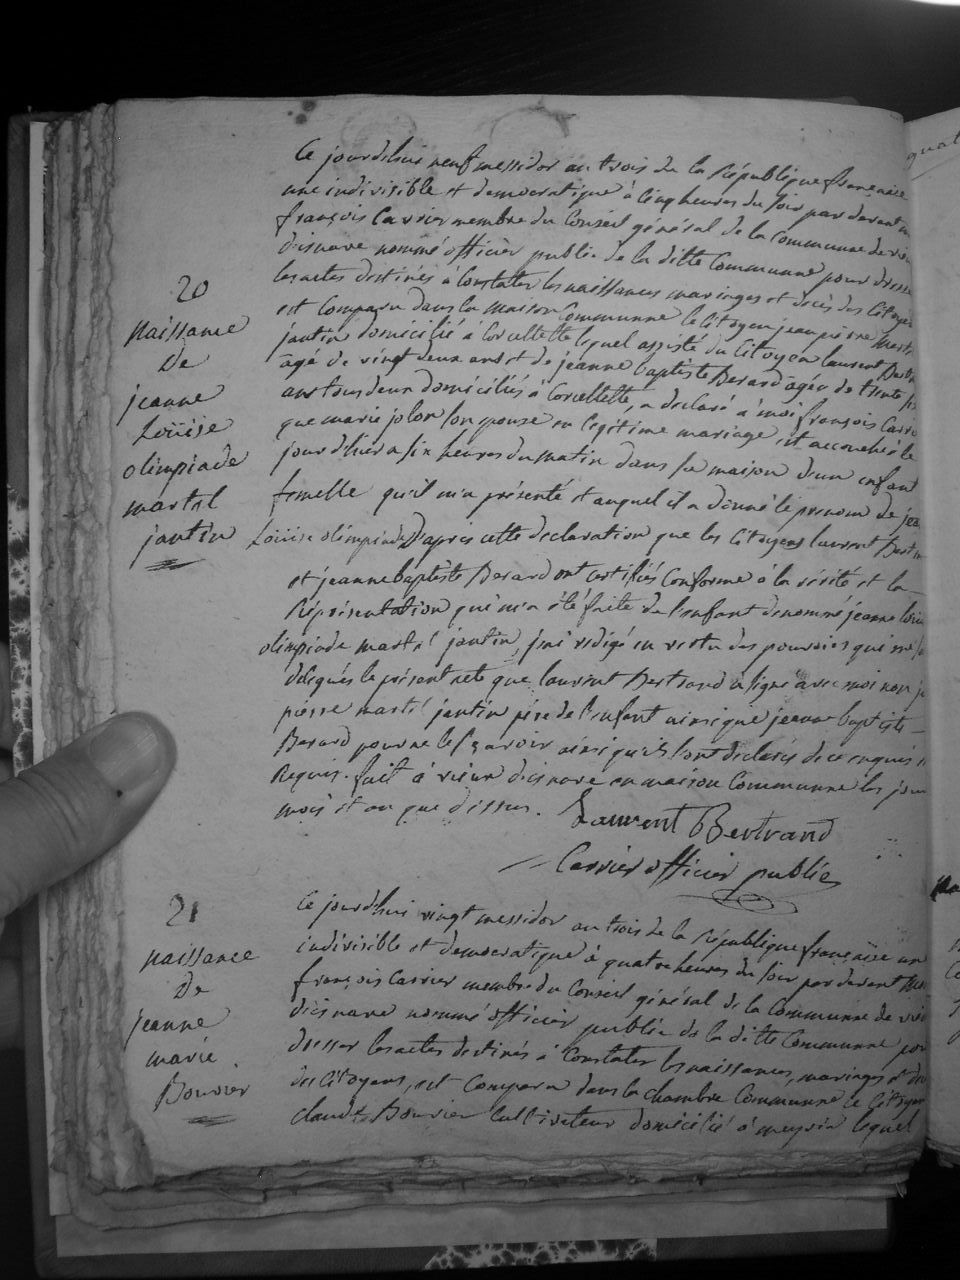 20
naissance
de
jeanne
Loüise
olimpiade
martel
jantin
Ce jourdhui neuf messidor an trois de la République française
une indivisible et democratique à cinq heures du soir par devant
françois Carrier membre du Conseil général de la Commune de
disnave nommé officier public de la ditte Commune pour dresse
les actes destinés à Constater les naissances mariages et decès des Citoyens
est Comparu dans la maison Commune le Citoyen jean pierre
jantin domicilié à Corcellette lequel assisté du Citoyen laurent
âgé de vingt deux ans et de jeanne baptiste Berard âgée de trente
ans tous deux domiciliés à Corcellette, a declaré à moi françois Carri
que marie jolon son epouse en légitime mariage est accouchée le
jour d'hier a six heures du matin dans sa maison d'un enfant
femelle qu'il m'a présenté et auquel il a donné le prenom de jea
Loüise olimpiade D'après cette declaration que les Citoyens laurent Bertr
et jeanne baptiste Berard ont certifiés Conforme à la vérité et la
Réprésentation qui m'a été faite de l'enfant denommé jeanne loui
olimpiade martel jantin, j'ai rédigé en vertu des pouvoirs qui me
délégués le présent acte que laurent Bertrand à signé avec moi non
pierre martel jantin père de l'enfant ainsi que jeanne baptiste
Berard pour ne le savoir ainsi qu'ils l'ont declarés de ce enquis
Requis. fait à vieux disnave en maison Commune les jour
mois et an que dessus. Laurent Bertrand
Carrier officier public
21
naissance
De
jeanne
marie
Bouvier
Ce jourdhui vingt messidor an trois de la République française une
indivisible et democratique à quatre heures du soir par devant
françois Carrier membre du Conseil général de la Commune de
disnave nommé officier public de la ditte Commune pour
dresser les actes destinés à Constater les naissances, mariages et
des Citoyens, est Comparu dans la chambre Commune le Citoyen
claude Bouvier Cultivateur domicilié à meyrin lequel